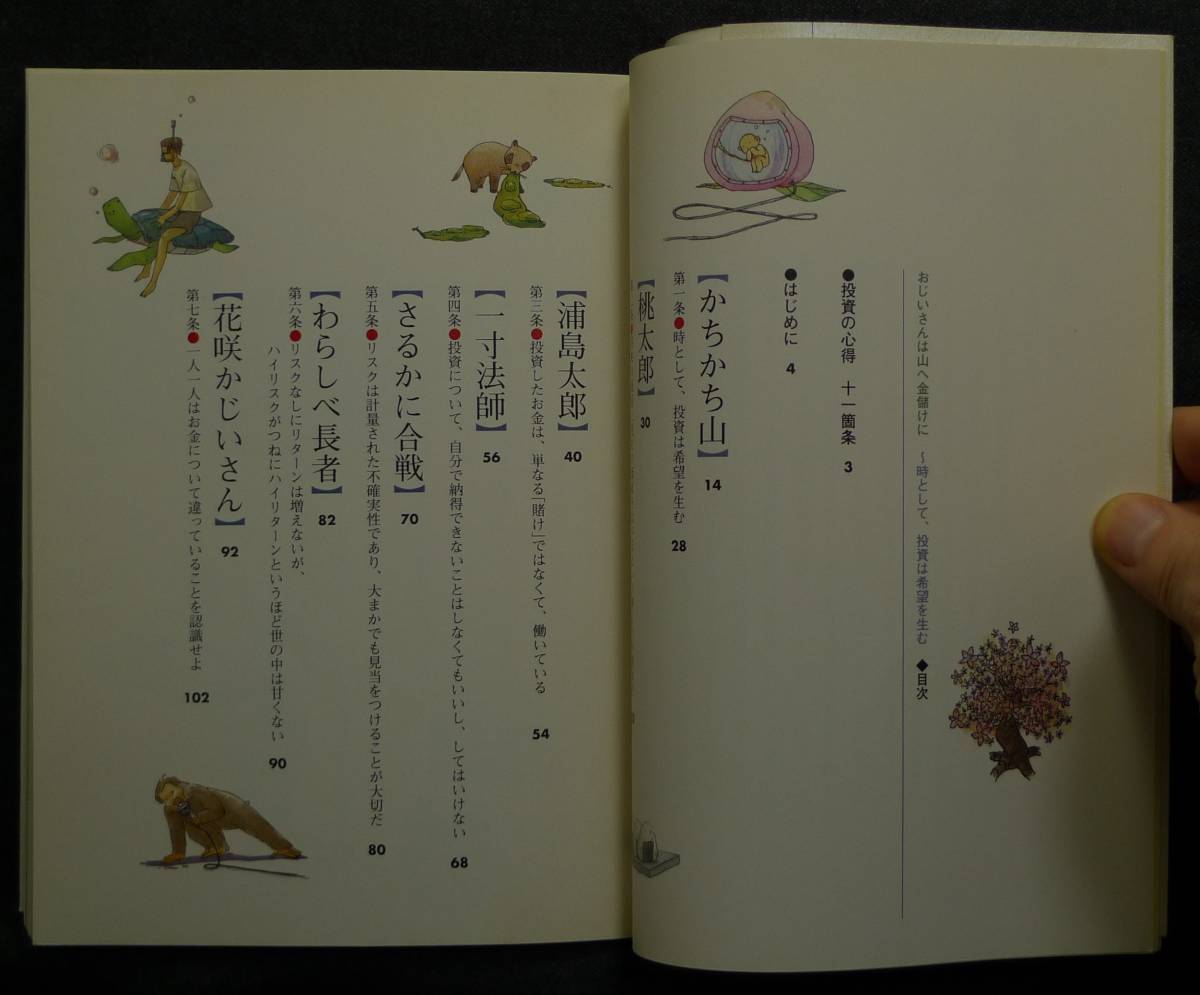 おじいさんは山へ金儲けに　～時として、投資は希望を生む　◆目次
●投資の心得　十一箇条　3
●はじめに　4
【かちかち山】　14
第一条●時として、投資は希望を生む　28
【桃太郎】　30
【浦島太郎】　40
第三条●投資したお金は、単なる「賭け」ではなくて、働いている　54
【一寸法師】　56
第四条●投資について、自分で納得できないことはしなくてもいいし、してはいけない　68
【さるかに合戦】　70
第五条●リスクは計量された不確実性であり、大まかでも見当をつけることが大切だ　80
【わらしべ長者】　82
第六条●リスクなしにリターンは増えないが、
ハイリスクがつねにハイリターンというほど世の中は甘くない　90
【花咲かじいさん】　92
第七条●一人一人はお金について違っていることを認識せよ　102